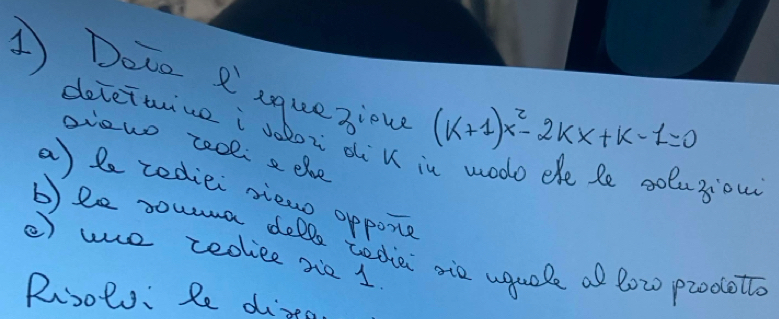 1) Data l'equazione (K+1)x²-2Kx+K-1=0
determina i valori di K in modo che le soluzioni
siano reali e che
a) le radici siano opposte
b) la somma delle radici sia uguale al loro prodotto
c) una radice sia 1.
Risolvi le